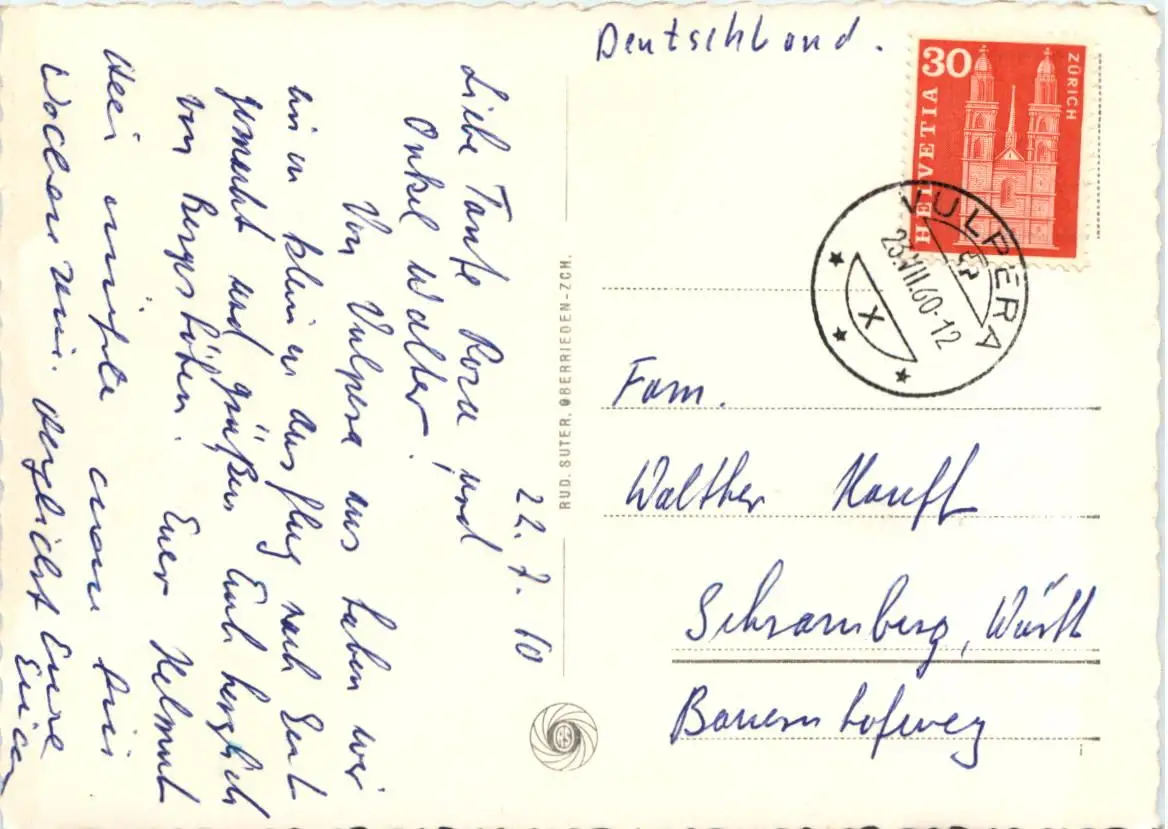 Deutschland.
30
HELVETIA
ZÜRICH
VULPERA
23.VII.60-12
X
22.7.60
Liebe Tante Rosa und
Onkel Walter!
Von Vulpera aus haben wir
einen kleinen Ausflug nach Sent
gemacht und grüßen Euch herzlich
von Bergeshöhen. Euer Helmut
Hier müßte man drei
Wochen sein. Herzlichst Eure
RUD. SUTER, OBERRIEDEN-ZCH.
RS
Fam.
Walther Hauff
Schramberg, Württ
Bauernhofweg